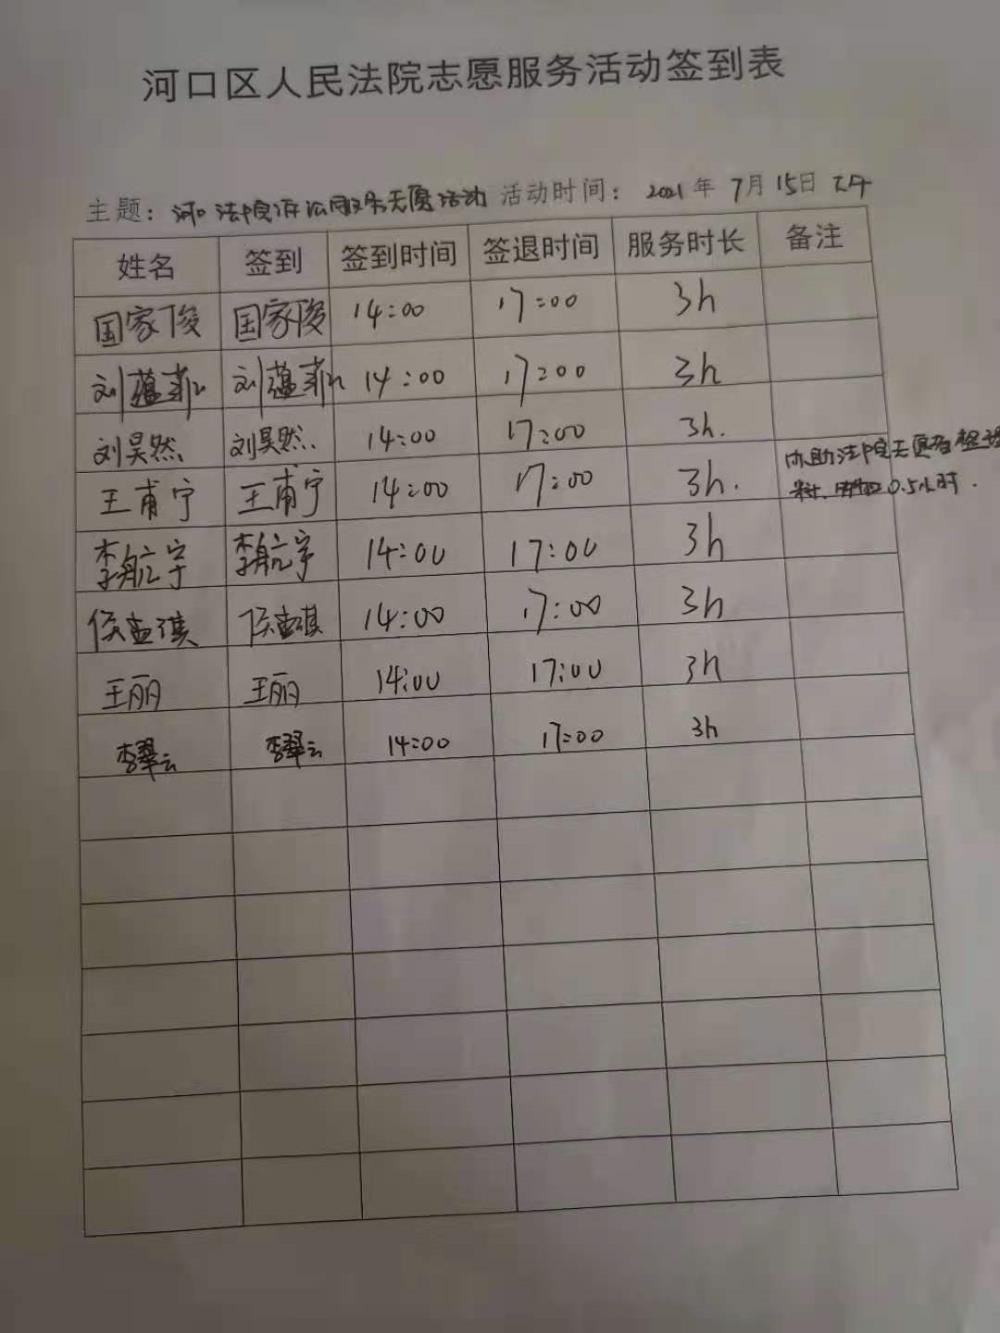 河口区人民法院志愿服务活动签到表
主题：河口法院诉讼服务志愿活动 活动时间：2021年7月15日下午
姓名 签到 签到时间 签退时间 服务时长 备注
国家俊 国家俊 14:00 17:00 3h
刘蕴菲 刘蕴菲 14:00 17:00 3h
刘昊然 刘昊然 14:00 17:00 3h.
王甫宁 王甫宁 14:00 17:00 3h. 协助法院志愿者整理
材料, 增加0.5小时.
李航宇 李航宇 14:00 17:00 3h
侯孟琪 侯孟琪 14:00 17:00 3h
王丽 王丽 14:00 17:00 3h
李翠云 李翠云 14:00 17:00 3h